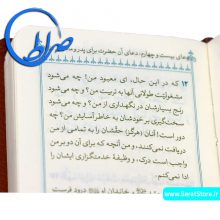 صراط
دعای بیست و چهارم: دعای آن حضرت برای پدر و مادر
۱۲ که در این حال، ای معبود من؟ چه می‌شود
مشغولیّت طولانی آنها به تربیت من؟ و چه می‌شود
رنج بسیارشان در نگهداری از من؟ و چه می‌شود
سختگیری بر خودشان به خاطر آسایش من؟ چه
دور است! آنان (هرگز) حقّشان را به تمامی از من
دریافت نمی‌کنند، و من آنچه که برای آن دو بر من
واجب است درک، و وظیفهٔ خدمتگزاری ایشان را
ادا نمی‌کنم.
خاندان او درود فرست
www.SeratStore.ir